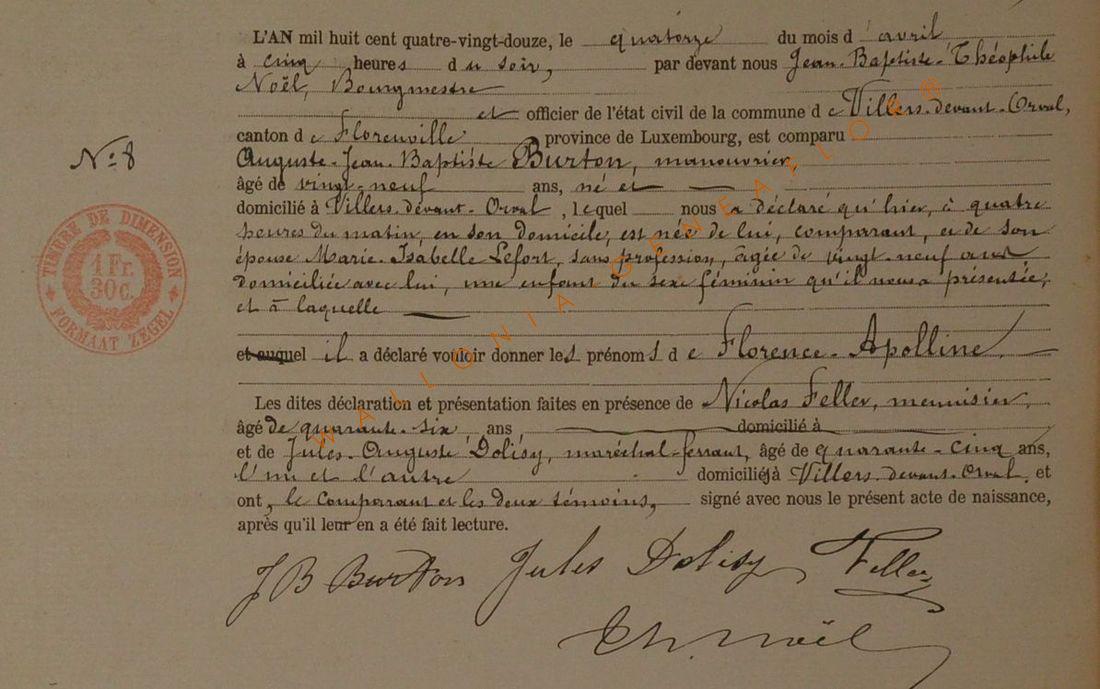 L'AN mil huit cent quatre-vingt-douze, le quatorze du mois d'avril
à cinq heures du soir, par devant nous Jean-Baptiste-Théophile
Noël, Bourgmestre
et officier de l'état civil de la commune de Villers-devant-Orval,
canton de Florenville province de Luxembourg, est comparu
N° 8
Auguste-Jean-Baptiste Burton, manouvrier
âgé de vingt-neuf ans, né et
domicilié à Villers-devant-Orval, lequel nous a déclaré qu'hier, à quatre
heures du matin, en son domicile, est née de lui, comparant, et de son
épouse Marie-Isabelle Lefort, sans profession, âgée de vingt-neuf ans
domiciliée avec lui, une enfant du sexe féminin qu'il nous a présentée,
et à laquelle
et auquel il a déclaré vouloir donner les prénoms de Florence-Apolline.
Les dites déclaration et présentation faites en présence de Nicolas Feller, menuisier,
âgé de quarante-six ans domicilié à
et de Jules-Auguste Dolisy, maréchal-ferrant, âgé de quarante-cinq ans,
l'un et l'autre domiciliés à Villers-devant-Orval, et
ont, le comparant et les deux témoins, signé avec nous le présent acte de naissance,
après qu'il leur en a été fait lecture.
JB Burton Jules Dolisy Feller
Th. Noël
TIMBRE DE DIMENSION
1 Fr.
30 C.
FORMAAT ZEGEL
WALLONIA GENEALOGIE®